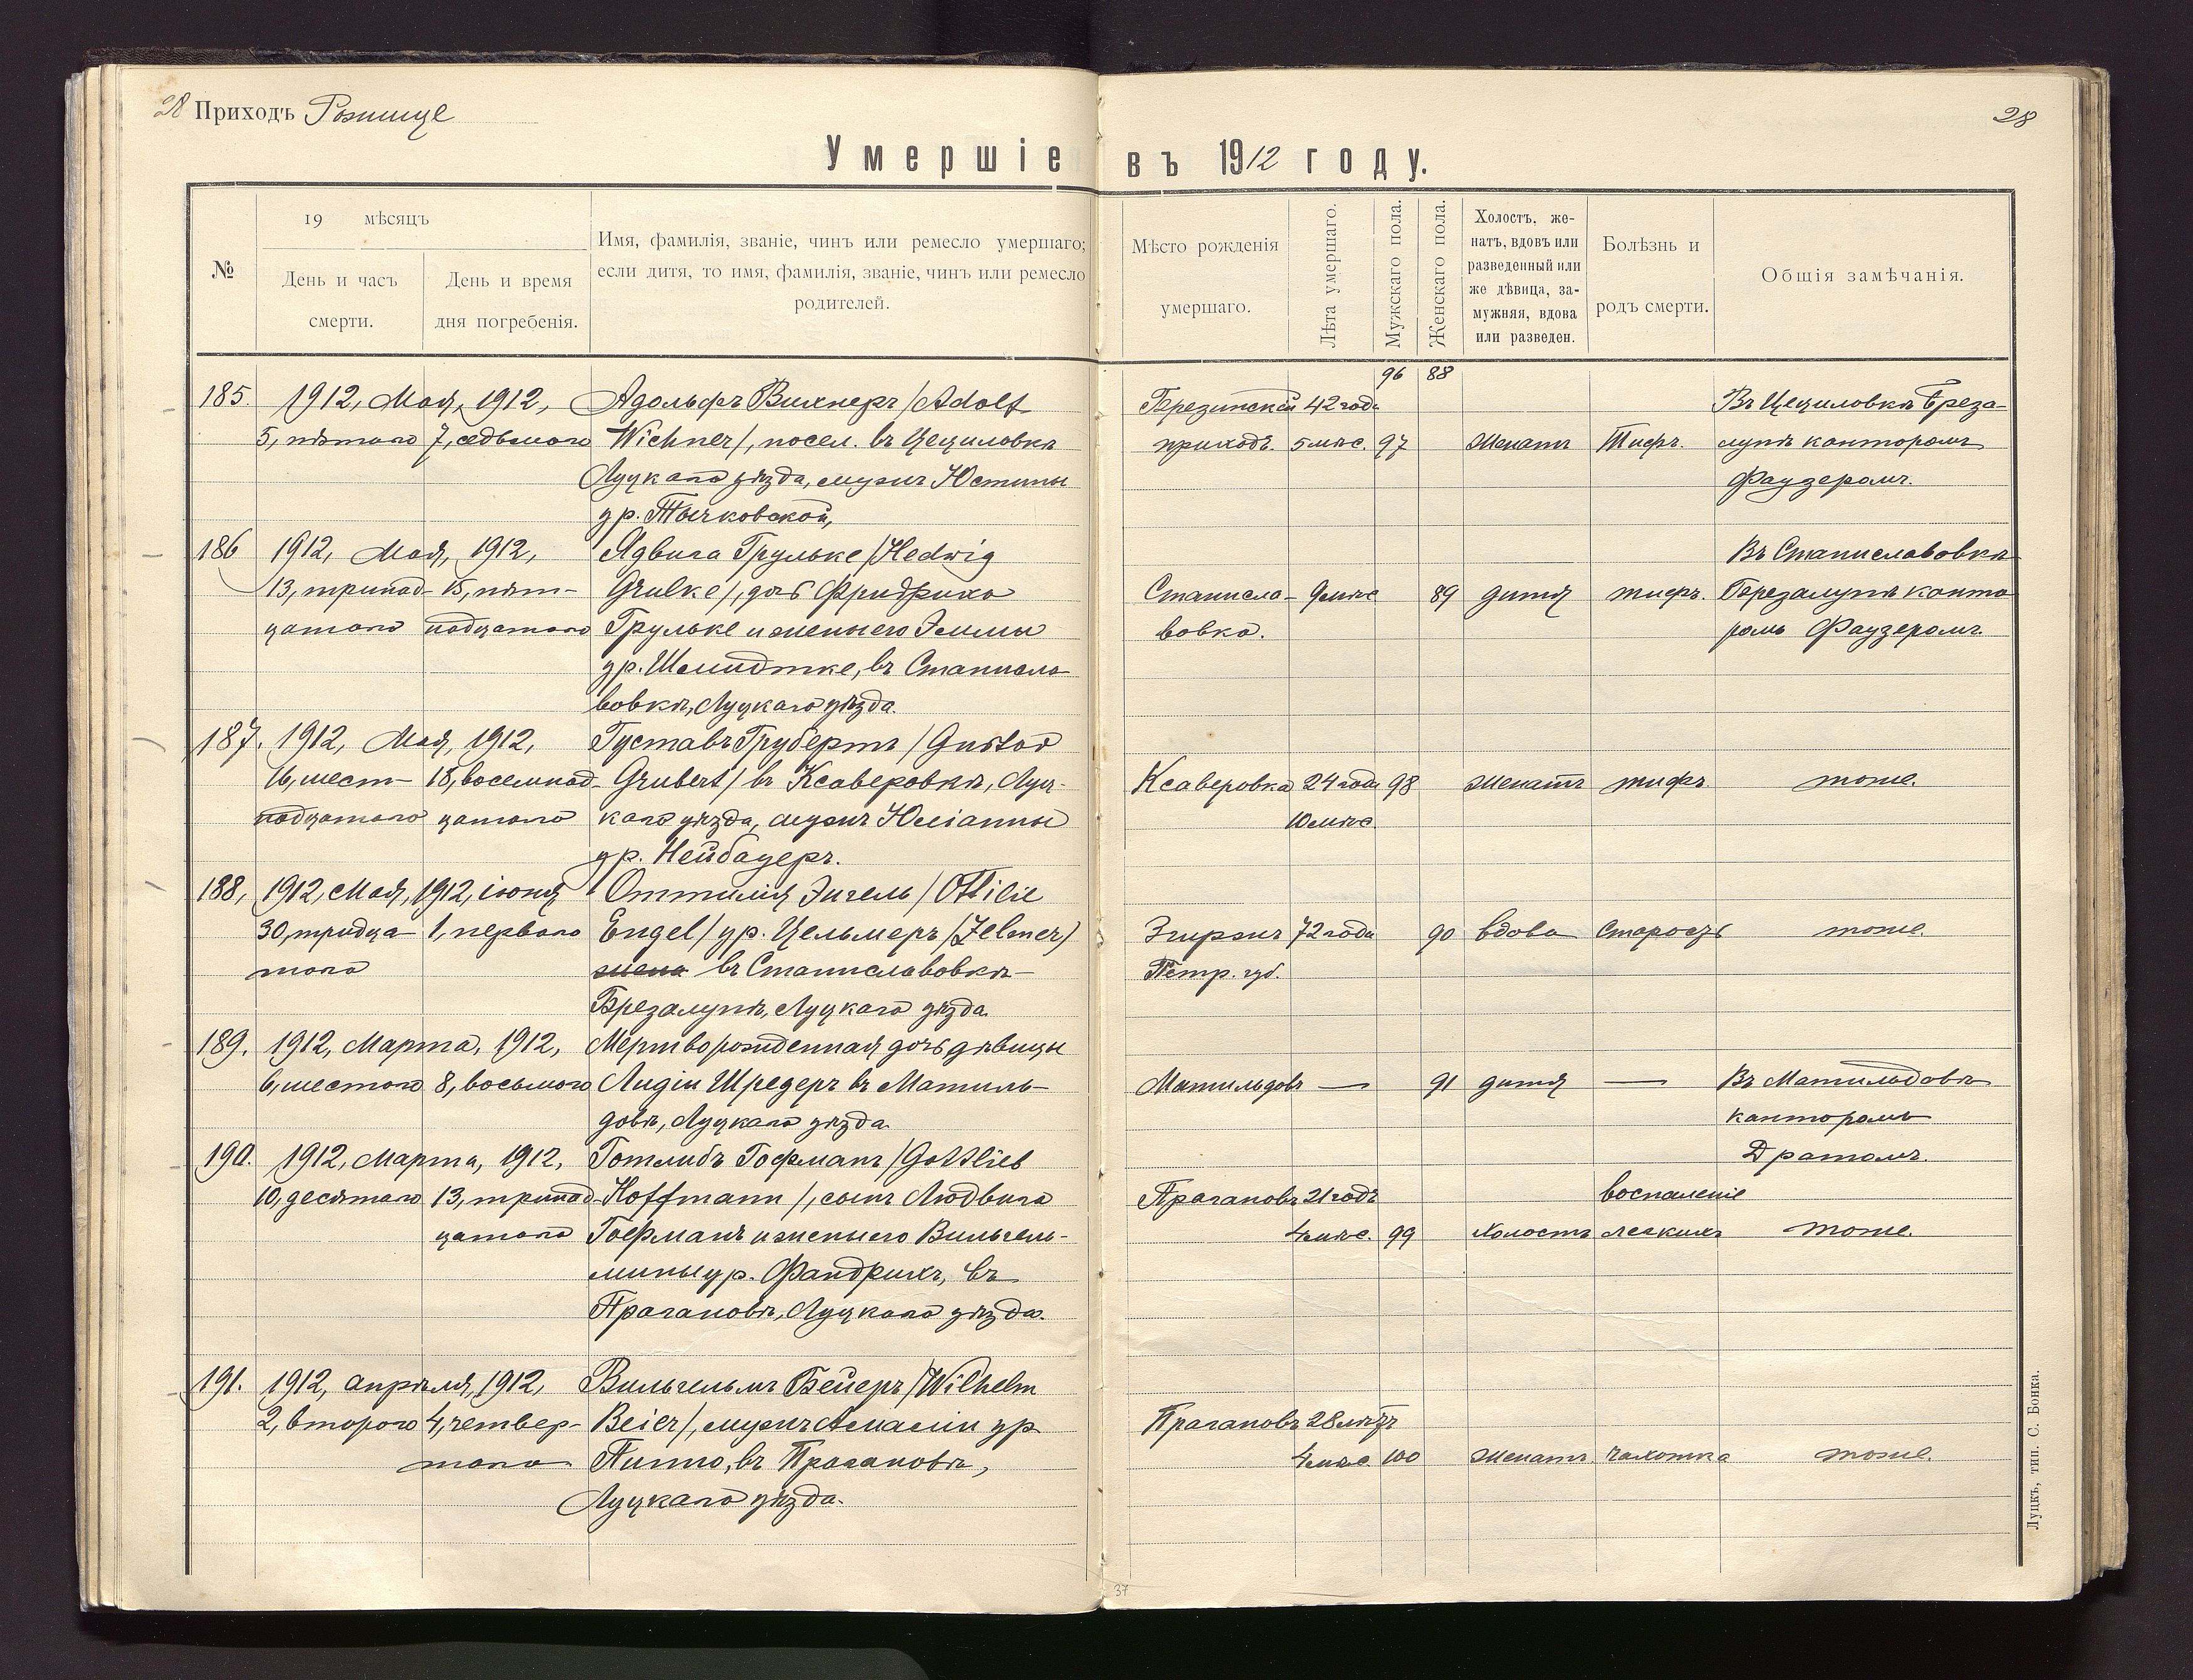 28 Приходъ Рожище
28
Умершіе въ 1912 году.
№
19 мѣсяцъ
День и часъ смерти.
День и время дня погребенія.
Имя, фамилія, званіе, чинъ или ремесло умершаго;
если дитя, то имя, фамилія, званіе, чинъ или ремесло
родителей.
Мѣсто рожденія
умершаго.
Лѣта умершаго.
Мужскаго пола.
Женскаго пола.
Холостъ, же-
натъ, вдовъ или
разведенный или
же дѣвица, за-
мужняя, вдова
или разведен.
Болѣзнь и
родъ смерти.
Общія замѣчанія.
96 88
185. 1912, Мая, 1912, Адольфъ Вихнеръ /Adolf
5, пятаго 7, седьмого Wichner/, посел. въ Цециловкѣ
Луцкаго уѣзда, мужъ Юстины
ур. Тычковской,
Березинскій 42 года
приходъ. 5 мѣс. 97 женатъ Тифъ.
Въ Цециловкѣ Береза-
лупѣ канторомъ
Фаузеромъ.
186 1912, Мая, 1912, Ядвига Грульке /Hedwig
13, тринад- 15, пят- Grulke/, дочь Фридриха
цатаго надцатаго Грульке и жены его Эммы
ур. Шмидтке, въ Станисла-
вовкѣ, Луцкаго уѣзда.
Станисла- 9 мѣс 89 дитя тифъ.
вовка.
Въ Станиславовкѣ
Березалупѣ канто
ромъ Фаузеромъ.
187. 1912, Мая, 1912, Густавъ Грубертъ /Gustav
16, шест- 18, восемнад- Grubert/ въ Ксаверовкѣ, Луц-
надцатаго цатаго каго уѣзда, мужъ Юліанны
ур. Нейбауеръ.
Ксаверовка 24 года 98 женатъ тифъ. тоже.
10 мѣс.
188, 1912, Мая, 1912, іюня Оттилія Энгель /Ottilie
30, тридца- 1, перваго Engel/ ур. Цельмеръ /Zelmer/
таго жена въ Станиславовкѣ-
Березалупѣ, Луцкаго уѣзда.
Згиржъ 72 года 90 вдова Старость тоже.
Петр. губ.
189. 1912, Марта, 1912, Мертворожденная дочь дѣвицы
6, шестого 8, восьмого Лидіи Шредеръ въ Матиль-
довѣ, Луцкаго уѣзда.
Матильдовъ — 91 дитя —
Въ Матильдовѣ
канторомъ
Дратомъ.
190. 1912, Марта, 1912, Готлибъ Гофманъ /Gottlieb
10, десятаго 13, тринад- Hoffmann/, сынъ Людвига
цатаго Гофманъ и жены его Вильгель-
мины ур. Фандрихъ, въ
Прагановѣ, Луцкаго уѣзда.
Прагановъ 21 годъ воспаленіе
4 мѣс. 99 холостъ легкихъ тоже.
191. 1912, апрѣля, 1912, Вильгельмъ Бейеръ /Wilhelm
2, второго 4, четвер- Beier/, мужъ Амаліи ур
таго въ Прагановѣ,
Луцкаго уѣзда.
Прагановъ 28 лѣтъ
4 мѣс. 100 женатъ чахотка тоже.
Луцкъ, тип. С. Бонка.
37